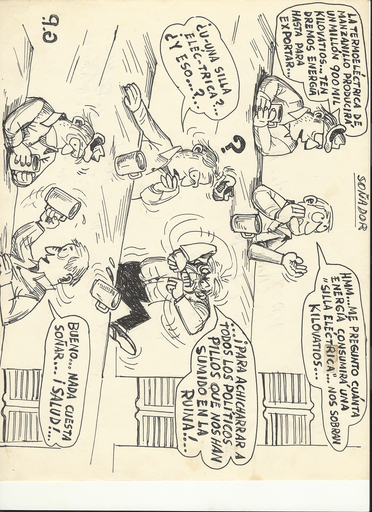 SOÑADOR
LA TERMOELÉCTRICA DE
MANZANILLO PRODUCIRÁ
UN MILLÓN 900 MIL
KILOVATIOS... TEN
DREMOS ENERGÍA
HASTA PARA
EXPORTAR...
HMM... ME PREGUNTO CUÁNTA
ENERGÍA CONSUMIRÁ UNA
"SILLA ELÉCTRICA"... NOS SOBRAN
KILOVATIOS...
¿U-UNA SILLA
ELEC-TRICA?..
¿Y ESO...?..
?
...¡PARA ACHICHARRAR A
TODOS LOS POLÍTICOS
PILLOS QUE NOS HAN
SUMIDO EN LA
RUINA!...
BUENO... NADA CUESTA
SOÑAR... ¡SALUD!...